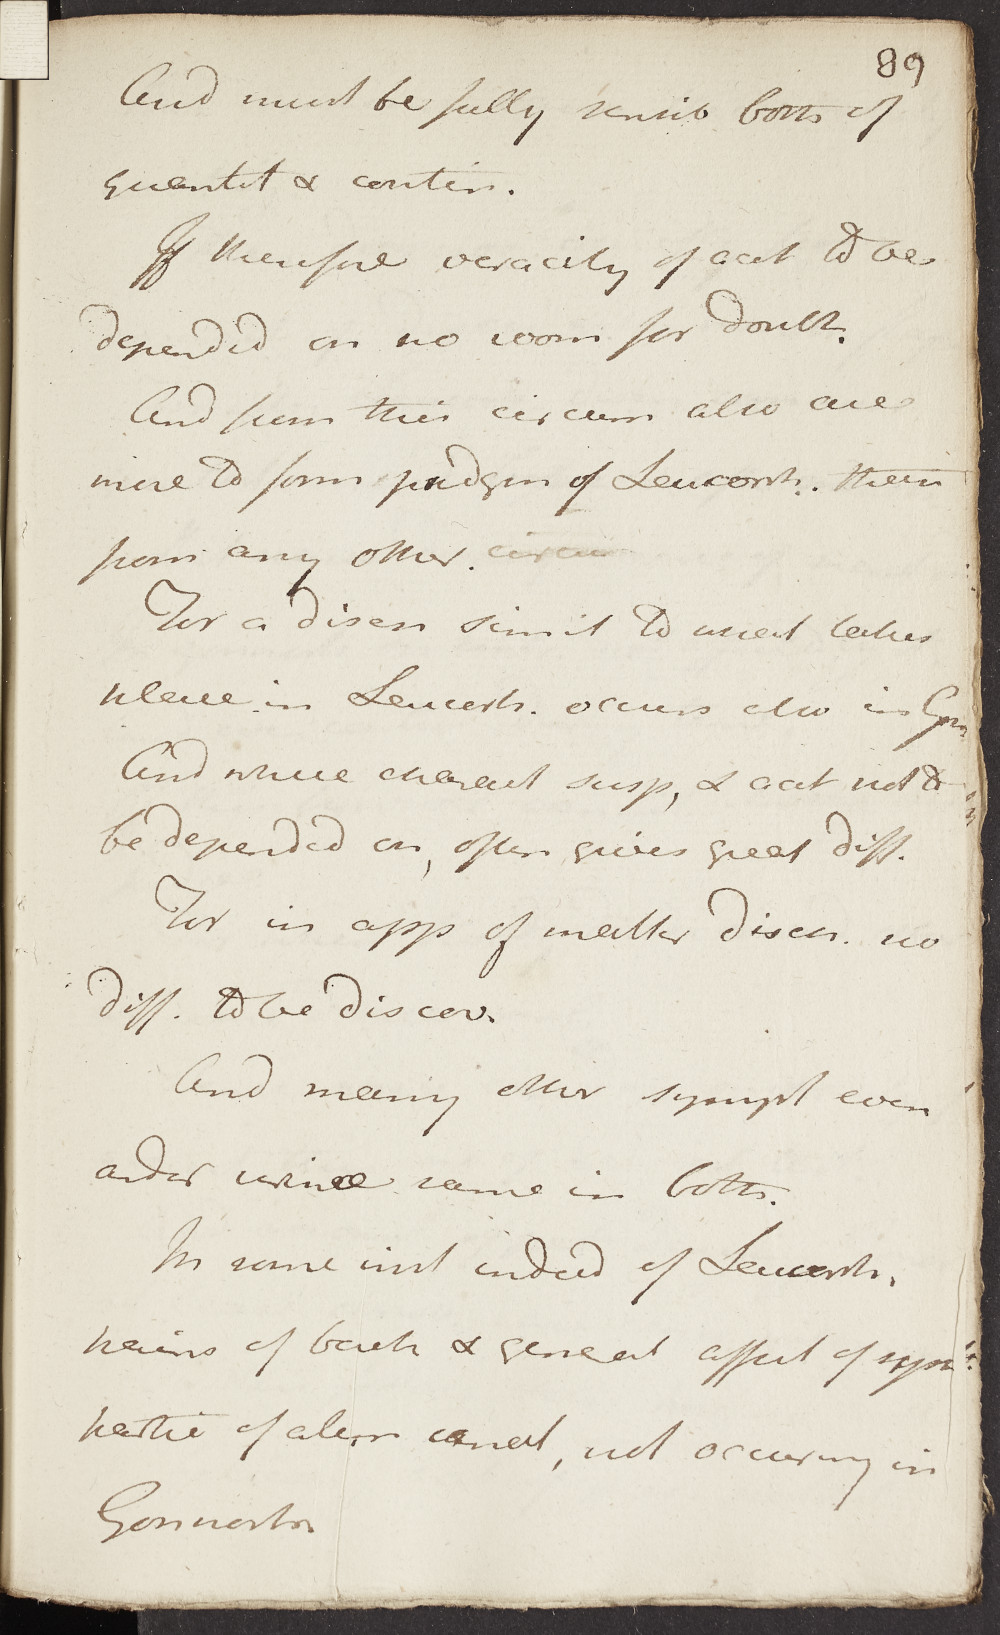 89
And must be fully sensib both of
quantit & contin.
If therefore veracity of acct to be
depended on no room for doubt.
And from this circum also are
more to form judgm of Leucorrh. than
from any other. circum
For a disch simil to what takes
place in Leucorh. occurs also in Gon
And where charact susp, & acct not to
be depended on, often gives great diff.
For in app of matter disch. no
diff. to be discov.
And many other sympt even
ardor urinae same in both.
In some inst indeed of Leucorrh,
pains of back & general affect of syst
partic of alim canal, not occuring in
Gonnorh